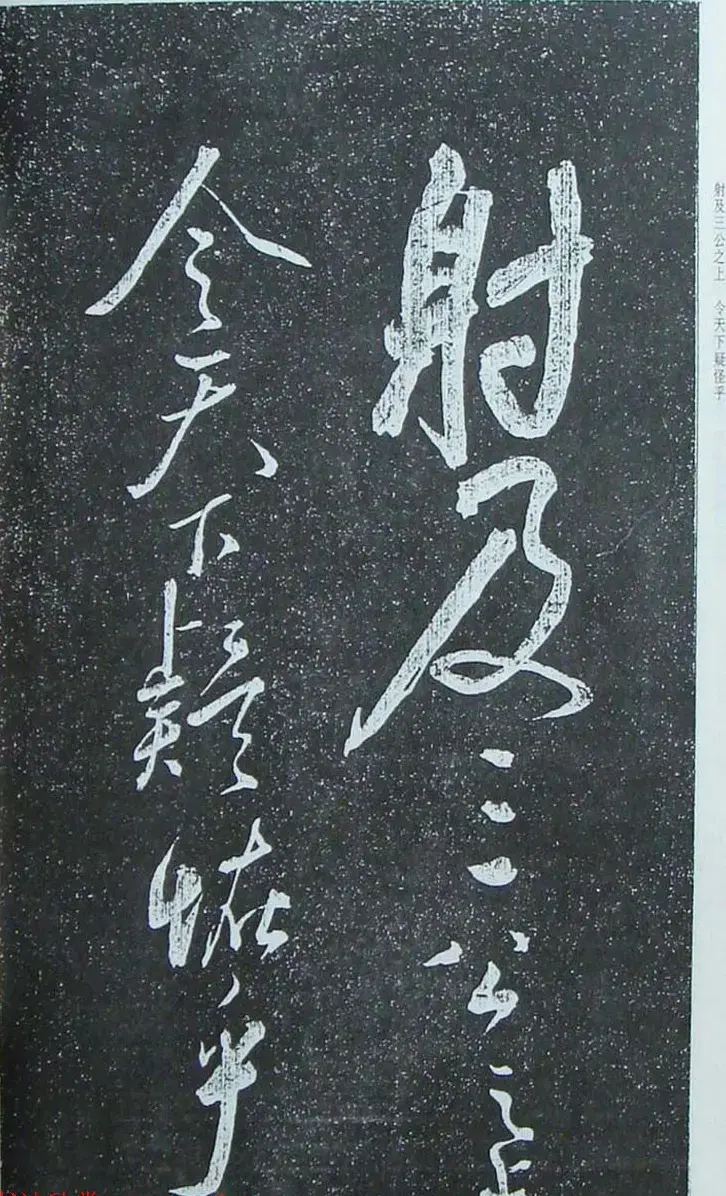 射及三公之上
令天下疑恠乎
射及三公之上 令天下疑怪乎